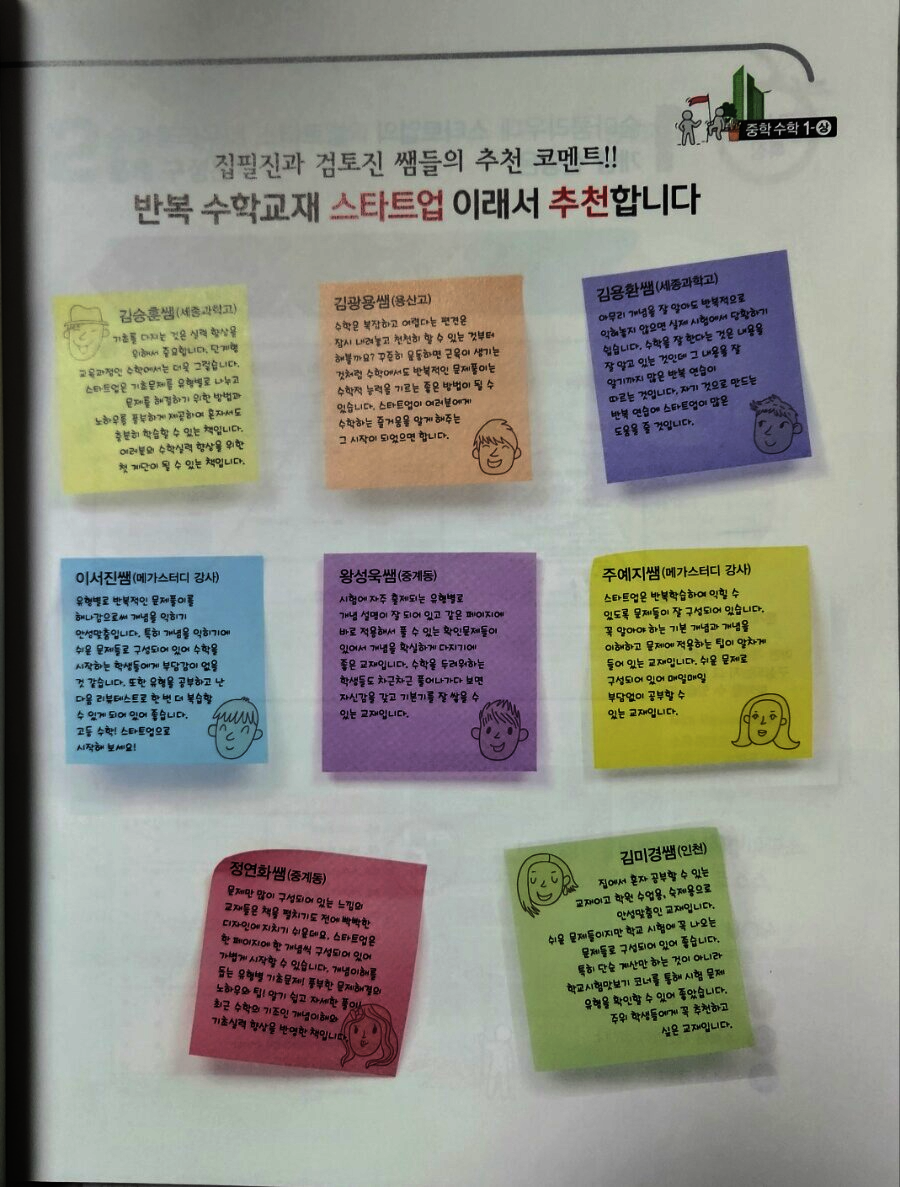 중학 수학 1-상
집필진과 검토진 쌤들의 추천 코멘트!!
반복 수학교재 스타트업 이래서 추천합니다
김승훈쌤(세종과학고)
기초를 다지는 것은 실력 향상을
위해서 중요합니다. 단계형
교육과정인 수학에서는 더욱 그렇습니다.
스타트업은 기초문제를 유형별로 나누고
문제를 해결하기 위한 방법과
노하우를 풍부하게 제공하여 혼자서도
충분히 학습할 수 있는 책입니다.
여러분의 수학실력 향상을 위한
첫 계단이 될 수 있는 책입니다.
김광용쌤(용산고)
수학은 복잡하고 어렵다는 편견은
잠시 내려놓고 천천히 할 수 있는 것부터
해볼까요? 꾸준히 운동하면 근육이 생기는
것처럼 수학에서도 반복적인 문제풀이는
수학적 능력을 기르는 좋은 방법이 될 수
있습니다. 스타트업이 여러분에게
수학하는 즐거움을 알게 해주는
그 시작이 되었으면 합니다.
김용환쌤(세종과학고)
아무리 개념을 잘 알아도 반복적으로
익혀놓지 않으면 실제 시험에서 당황하기
쉽습니다. 수학을 잘 한다는 것은 내용을
잘 알고 있는 것인데 그 내용을 잘
알기까지 많은 반복 연습이
따르는 것입니다. 자기 것으로 만드는
반복 연습에 스타트업이 많은
도움을 줄 것입니다.
이서진쌤(메가스터디 강사)
유형별로 반복적인 문제풀이를
해나감으로써 개념을 익히기
안성맞춤입니다. 특히 개념을 익히기에
쉬운 문제들로 구성되어 있어 수학을
시작하는 학생들에게 부담감이 없을
것 같습니다. 또한 유형을 공부하고 난
다음 리뷰테스트로 한 번 더 복습할
수 있게 되어 있어 좋습니다.
고등 수학! 스타트업으로
시작해 보세요!
왕성욱쌤(중계동)
시험에 자주 출제되는 유형별로
개념 설명이 잘 되어 있고 같은 페이지에
바로 적용해서 풀 수 있는 확인문제들이
있어서 개념을 확실하게 다지기에
좋은 교재입니다. 수학을 두려워하는
학생들도 차근차근 풀어나가다 보면
자신감을 갖고 기본기를 잘 쌓을 수
있는 교재입니다.
주예지쌤(메가스터디 강사)
스타트업은 반복학습하여 익힐 수
있도록 문제들이 잘 구성되어 있습니다.
꼭 알아야 하는 기본 개념과 개념을
이해하고 문제에 적용하는 팁이 알차게
들어 있는 교재입니다. 쉬운 문제로
구성되어 있어 매일매일
부담없이 공부할 수
있는 교재입니다.
정연화쌤(중계동)
문제만 많이 구성되어 있는 느낌의
교재들은 책을 펼치기도 전에 빡빡한
디자인에 지치기 쉬운데요, 스타트업은
한 페이지에 한 개념씩 구성되어 있어
가볍게 시작할 수 있습니다. 개념이해를
돕는 유형별 기초문제! 풍부한 문제해결의
노하우와 팁! 알기 쉽고 자세한 풀이!
최근 수학의 기조인 개념이해와
기초실력 향상을 반영한 책입니다.
김미경쌤(인천)
집에서 혼자 공부할 수 있는
교재이고 학원 수업용, 숙제용으로
안성맞춤인 교재입니다.
쉬운 문제들이지만 학교 시험에 꼭 나오는
문제들로 구성되어 있어 좋습니다.
특히 단순 계산만 하는 것이 아니라
학교시험맛보기 코너를 통해 시험 문제
유형을 확인할 수 있어 좋았습니다.
주위 학생들에게 꼭 추천하고
싶은 교재입니다.